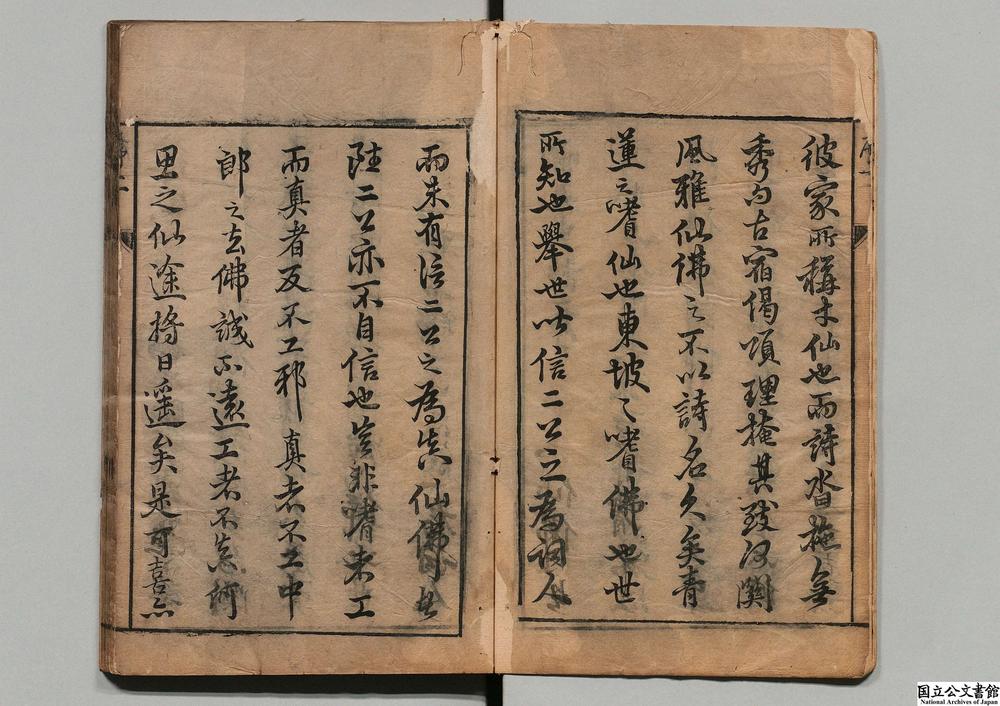 彼家所稱才仙也而詩沓拖無
秀句古宿偈頌理掩其致沒關
風雅仙佛之不以詩名久矣青
蓮之嗜仙也東坡之嗜佛也世
所知也舉世皆信二公之為詞人
而未有信二公之為真仙佛者
二公亦不自信也豈非嗜未工
而真者反不工邪真者不工中
郎之去佛誠不遠工者不真何
思之仙途將日遙矣是可喜亦
国立公文書館
National Archives of Japan